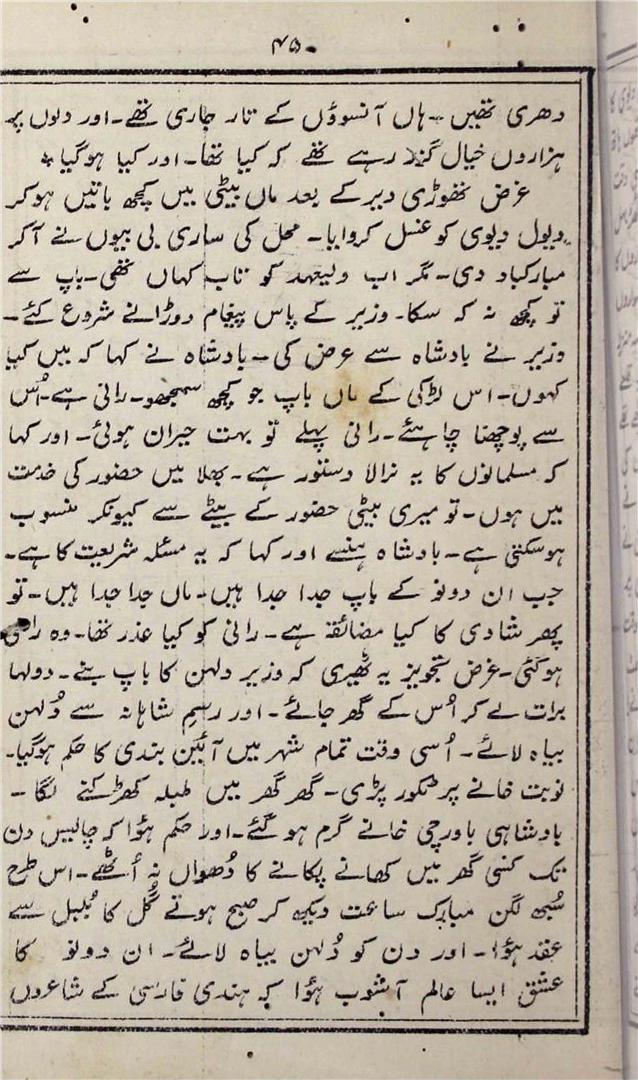 ۴۵
دھری تھیں۔ ہاں آنسوؤں کے تار جاری تھے۔ اور دلوں پر
ہزاروں خیال گذر رہے تھے کہ کیا تھا۔ اور کیا ہوگیا ٭
غرض تھوڑی دیر کے بعد ماں بیٹی میں کچھ باتیں ہوکر
دیول دیوی کو غسل کروایا۔ محل کی ساری بی بیوں نے آکر
مبارکباد دی۔ مگر اب ولیعہد کو تاب کہاں تھی۔ باپ سے
تو کچھ نہ کہ سکا۔ وزیر کے پاس پیغام دوڑانے شروع کئے۔
وزیر نے بادشاہ سے عرض کی۔ بادشاہ نے کہا کہ میں کیا
کہوں۔ اس لڑکی کے ماں باپ جو کچھ سمجھو۔ رانی ہے۔ اُس
سے پوچھنا چاہئے۔ رانی پہلے تو بہت حیران ہوئی۔ اور کہا
کہ مسلمانوں کا یہ نرالا دستور ہے۔ بھلا میں حضور کی خدمت
میں ہوں۔ تو میری بیٹی حضور کے بیٹے سے کیونکر منسوب
ہوسکتی ہے۔ بادشاہ ہنسے اور کہا کہ یہ مسئلہ شریعت کا ہے۔
جب ان دونو کے باپ جدا جدا ہیں۔ ماں جدا جدا ہیں۔ تو
پھر شادی کا کیا مضائقہ ہے۔ رانی کو کیا عذر تھا۔ وہ راضی
ہوگئی۔ غرض تجویز یہ ٹھیری کہ وزیر دلہن کا باپ بنے۔ دولہا
برات لے کر اُس کے گھر جائے۔ اور رسمِ شاہانہ سے دُلہن
بیاہ لائے۔ اُسی وقت تمام شہر میں آئین بندی کا حکم ہوگیا۔
نوبت خانے پر ٹکور پڑی۔ گھر گھر میں طبلہ کھڑکنے لگا۔
بادشاہی باورچی خانے گرم ہو گئے۔ اور حکم ہؤا کہ چالیس دن
تک کسی گھر میں کھانے پکانے کا دُھواں نہ اُٹھے۔ اس طرح
سُبھ لگن مبارک ساعت دیکھ کر صبح ہوتے گُل کا بُلبل سے
عقد ہؤا۔ اور دن کو دُلہن بیاہ لائے۔ ان دونو کا
عشق ایسا عالم آشوب ہؤا کہ ہندی فارسی کے شاعروں